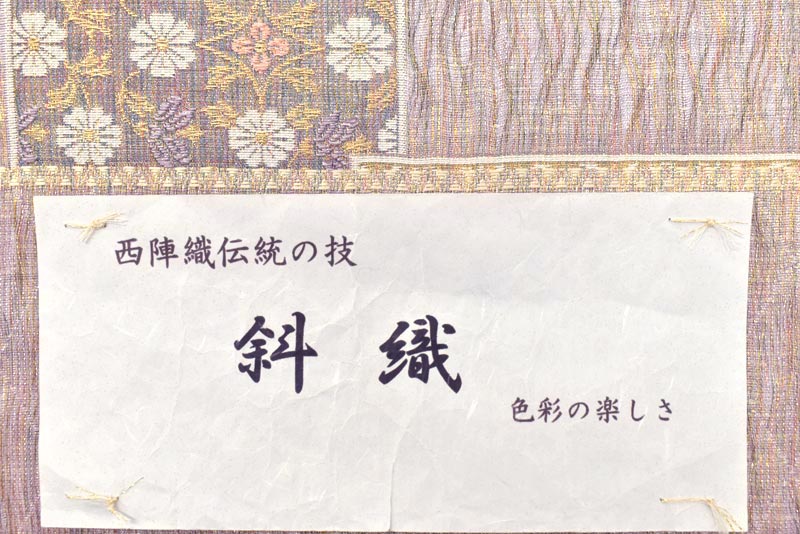 西陣織伝統の技
斜織
色彩の楽しさ